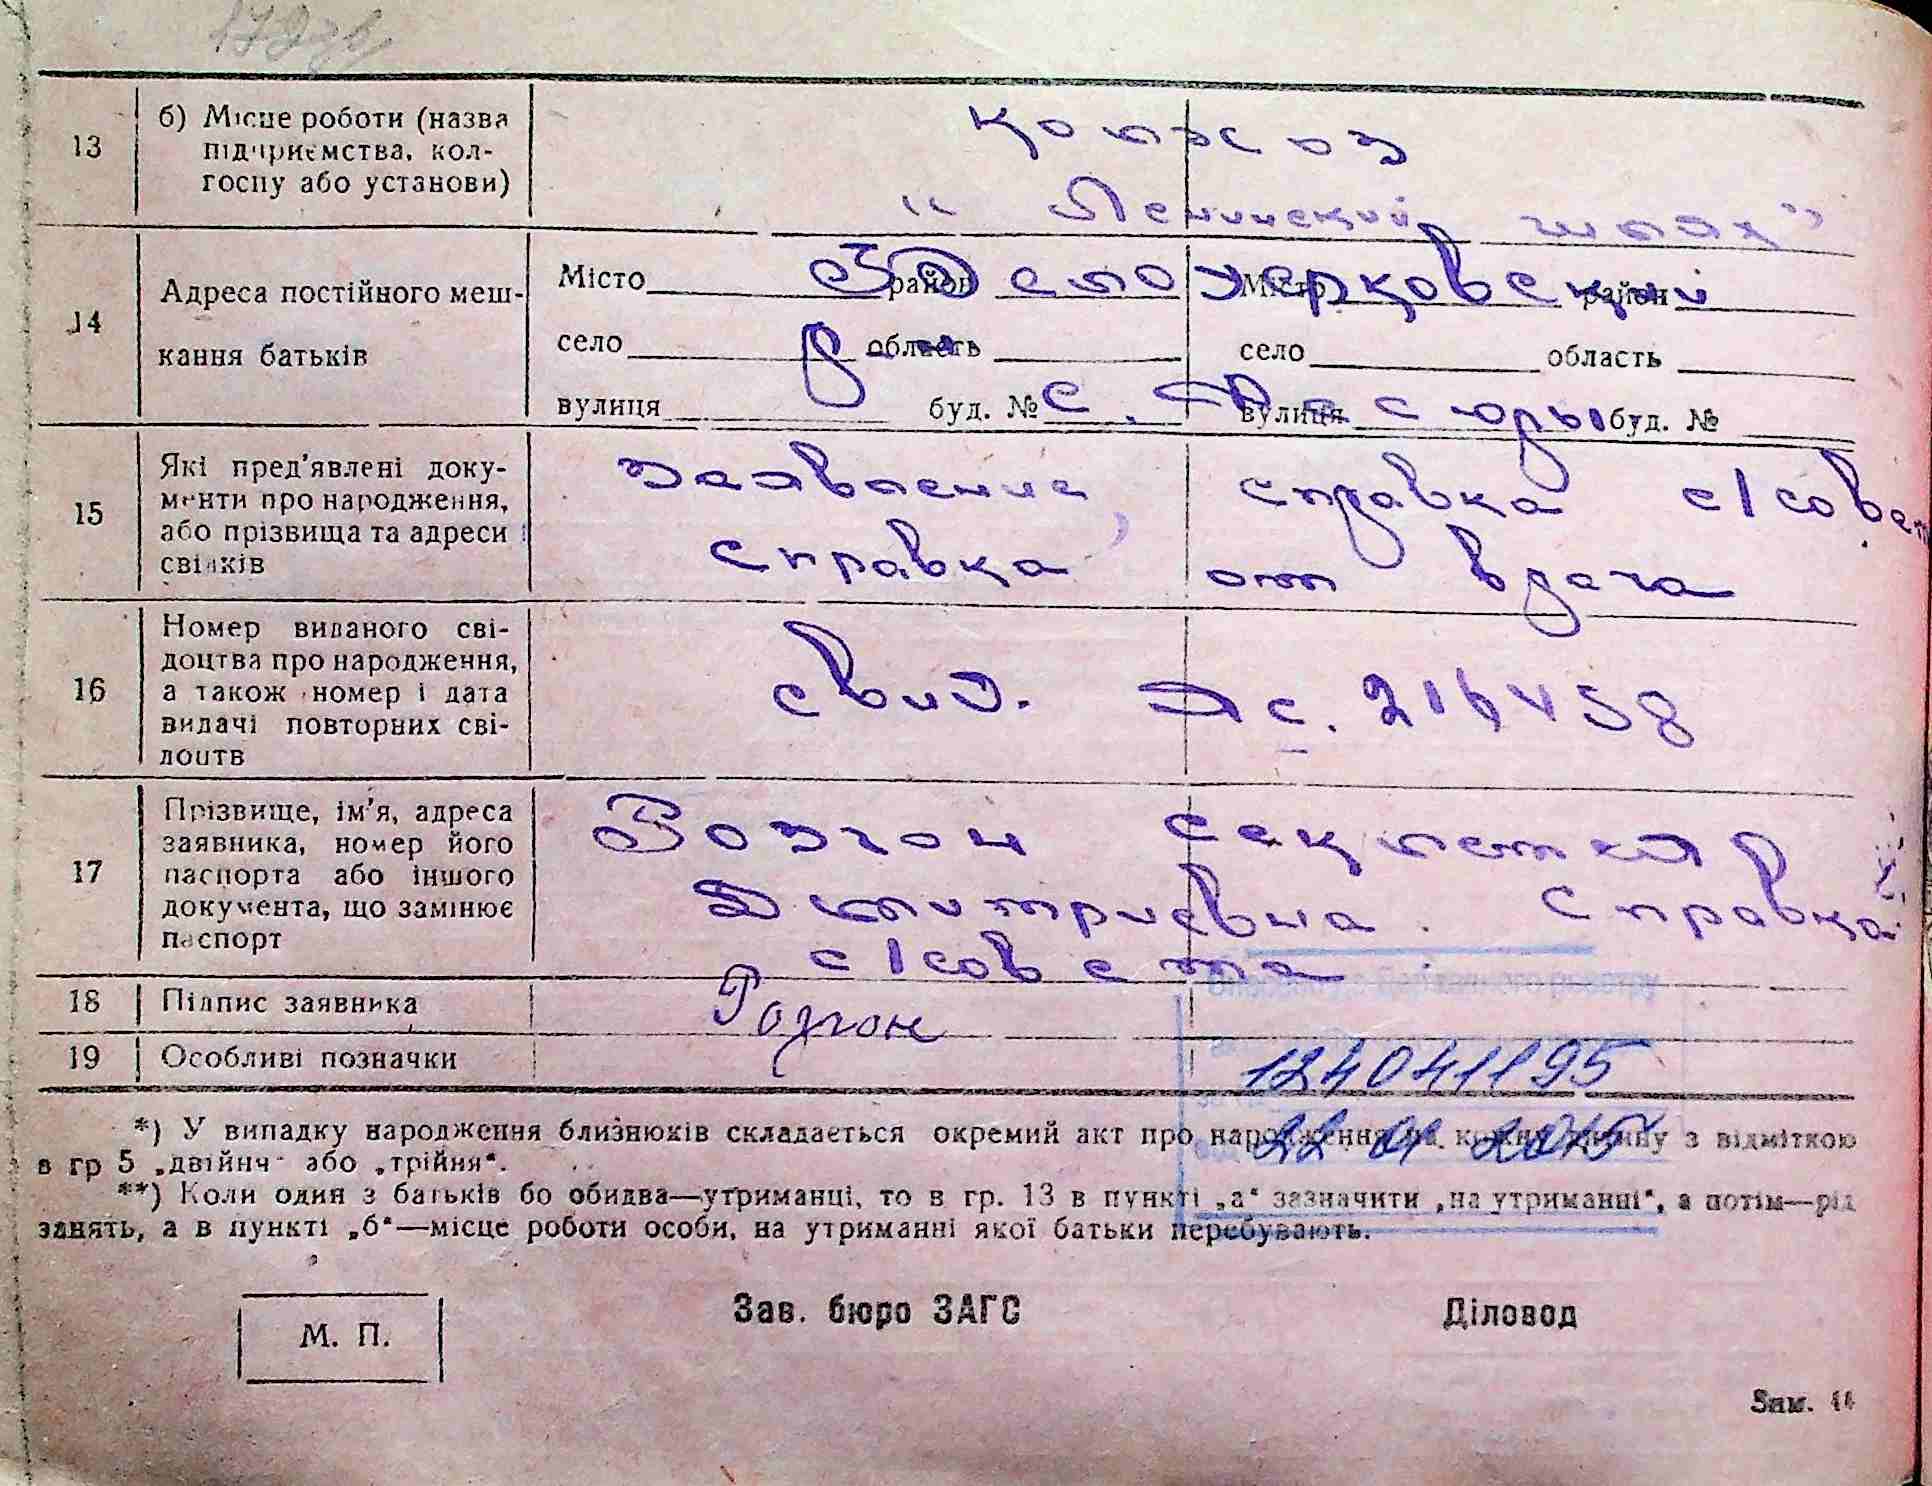 179зв
13
б) Місце роботи (назва
підприємства, кол-
госпу або установи)
колхоз
"Ленинский шлях"
14
Адреса постійного меш-
кання батьків
Місто район Місто район
Белоцерковский
село область село область
р-н
вулиця буд. № вулиця буд. №
с. Фастовка
15
Які пред'явлені доку-
менти про народження,
або прізвища та адреси
свідків
заявление, справка с/совета
справка от врача
16
Номер виданого сві-
доцтва про народження,
а також номер і дата
видачі повторних сві-
доцтв
свид. ЯС. 216458
17
Прізвище, ім'я, адреса
заявника, номер його
паспорта або іншого
документа, що замінює
паспорт
Розгон
Дмитриевна. Справка
с/совета
18
Підпис заявника
Розгон
19
Особливі позначки
Державного реєстру
124041195
22 01 2015
*) У випадку народження близнюків складається окремий акт про народження на кожну дитину з відміткою
в гр 5 „двійня“ або „трійня“.
**) Коли один з батьків бо обидва—утриманці, то в гр. 13 в пункті „а“ зазначити „на утриманні“, а потім—рід
занять, а в пункті „б“—місце роботи особи, на утриманні якої батьки перебувають.
М. П.
Зав. бюро ЗАГС
Діловод
Зам.